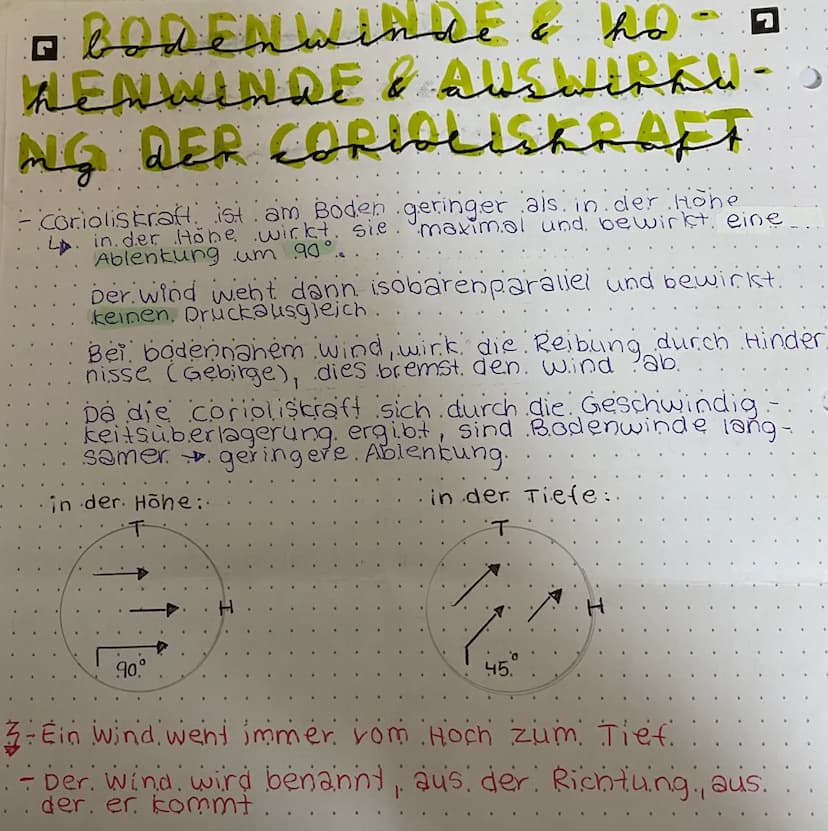 BODENWINDE & HÖ-
HENWINDE & AUSWIRKU-
NG DER CORIOLISKRAFT
- Corioliskraft ist am Boden geringer als in der Höhe
↳ in der Höhe wirkt sie maximal und bewirkt eine
Ablenkung um 90°.
Der Wind weht dann isobarenparallel und bewirkt
keinen Druckausgleich
Bei bodennahem Wind, wirk die Reibung durch Hinder
nisse (Gebirge), dies bremst den Wind ab.
Da die Corioliskraft sich durch die Geschwindig-
keitsüberlagerung ergibt, sind Bodenwinde lang-
samer → geringere Ablenkung.
in der Höhe:
in der Tiefe:
T
T
H
H
90°
45°
- Ein Wind weht immer vom Hoch zum Tief.
- Der Wind wird benannt, aus der Richtung, aus
der er kommt